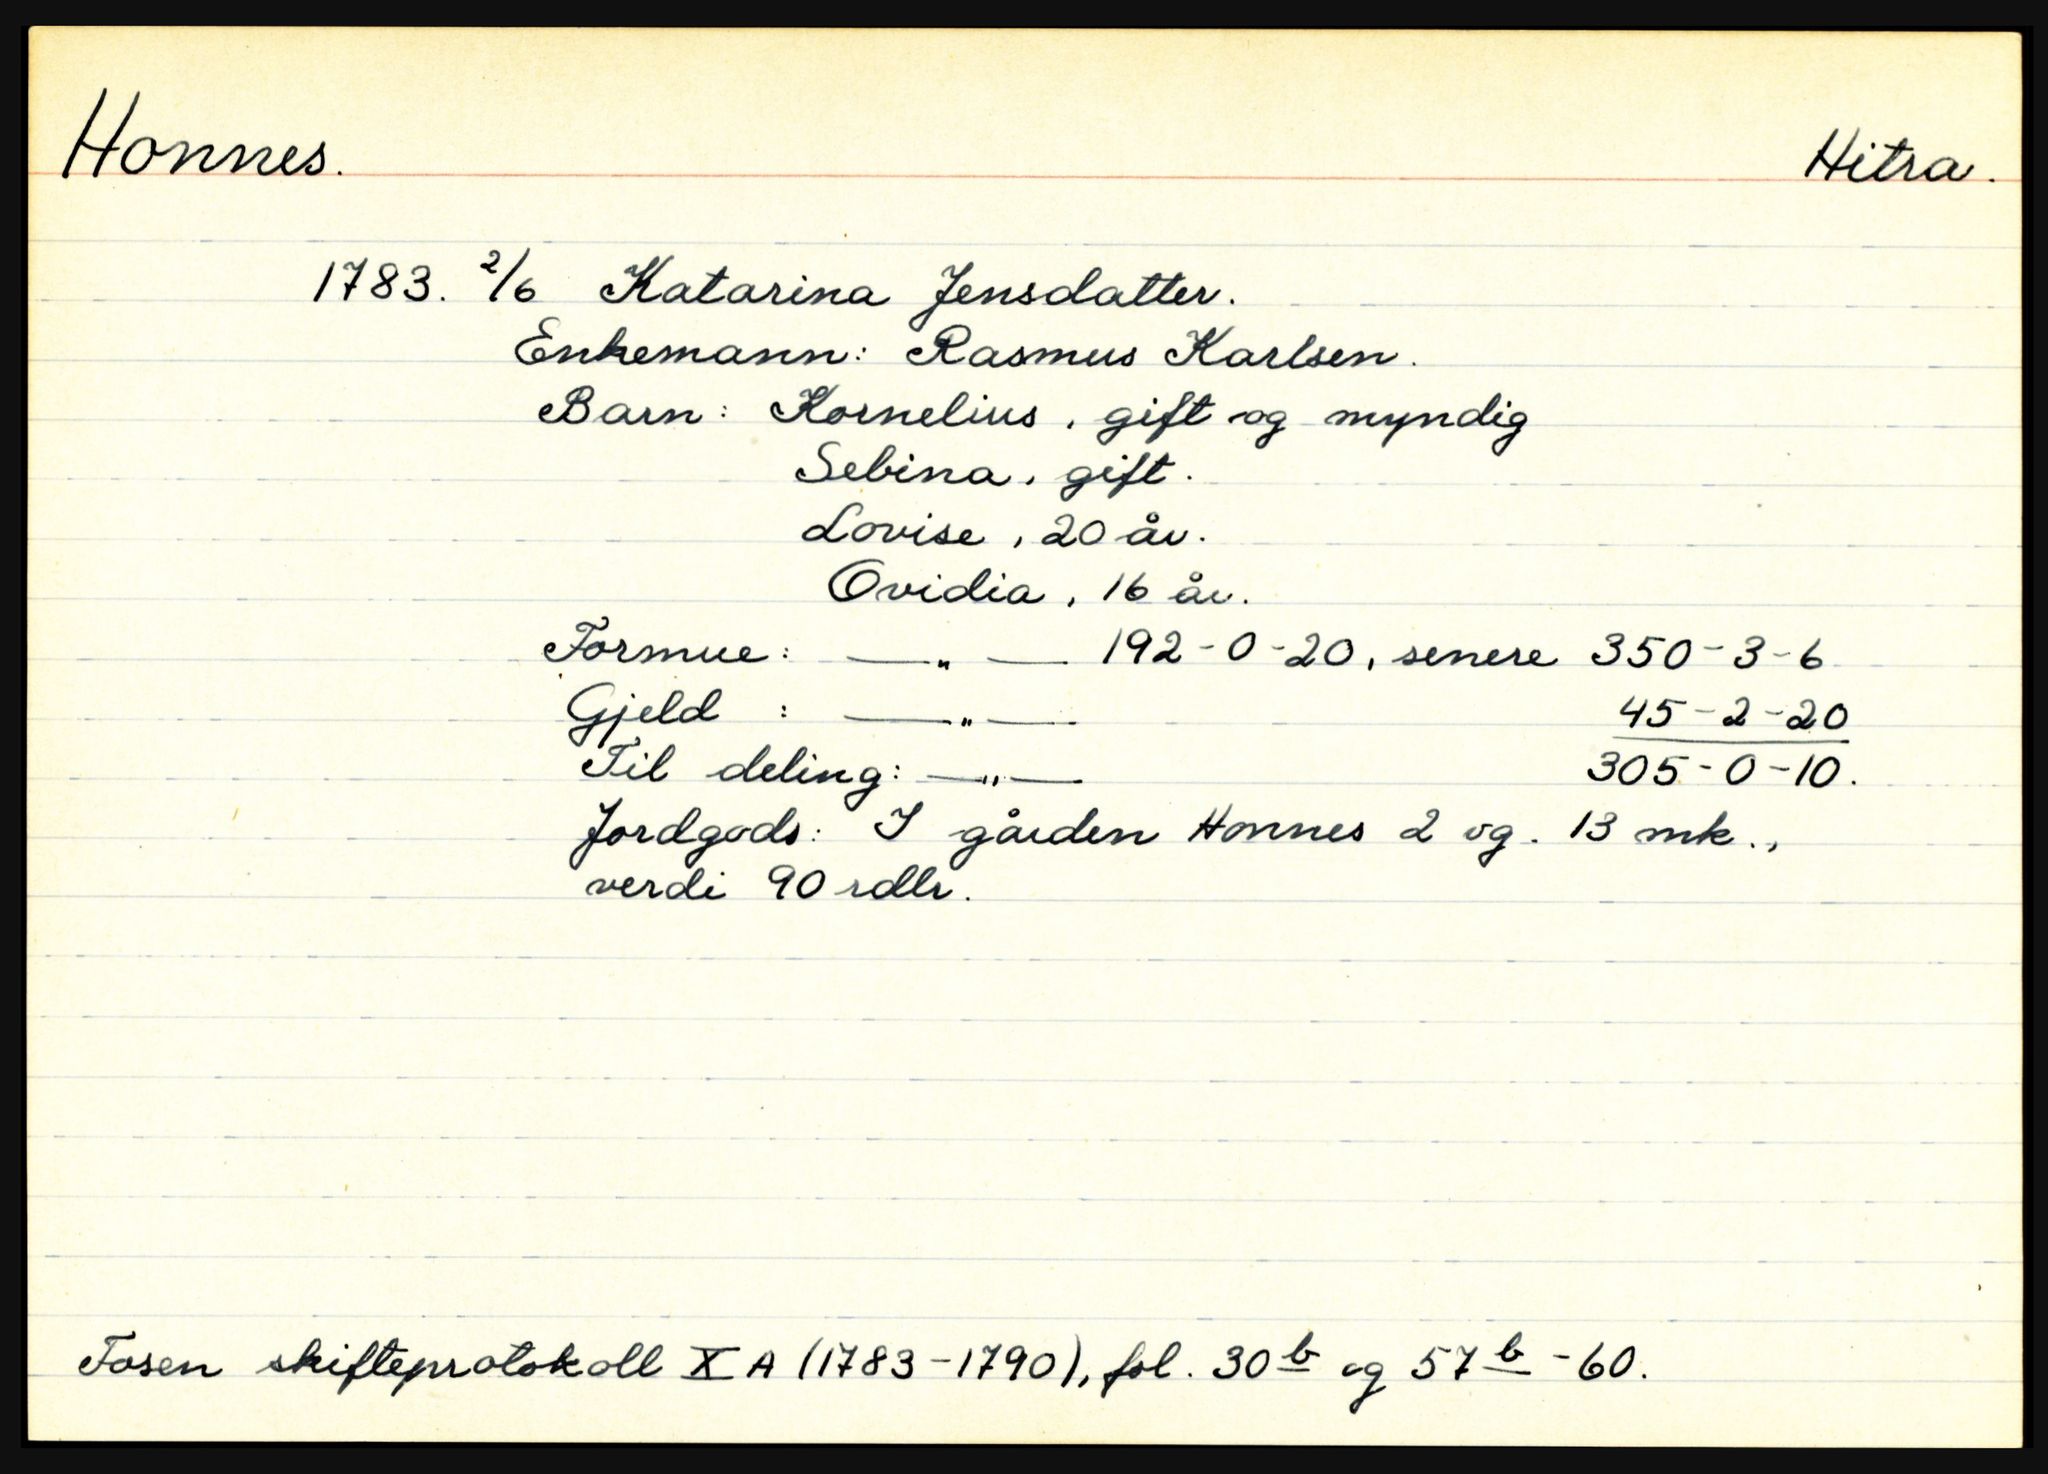 Honnes. Hitra.
1783. 2/6 Katarina Jensdatter.
Enkemann: Rasmus Karlsen.
Barn: Kornelius, gift og myndig
Sebina, gift.
Lovise, 20 år.
Ovidia, 16 år.
Formue: —„— 192-0-20, senere 350-3-6
Gjeld : —„— 45-2-20
Til deling: —„— 305-0-10.
Jordgods: I gården Honnes 2 og. 13 mk.,
verdi 90 rdlr.
Fosen skifteprotokoll X A (1783-1790), fol. 30 b og 57 b -60.